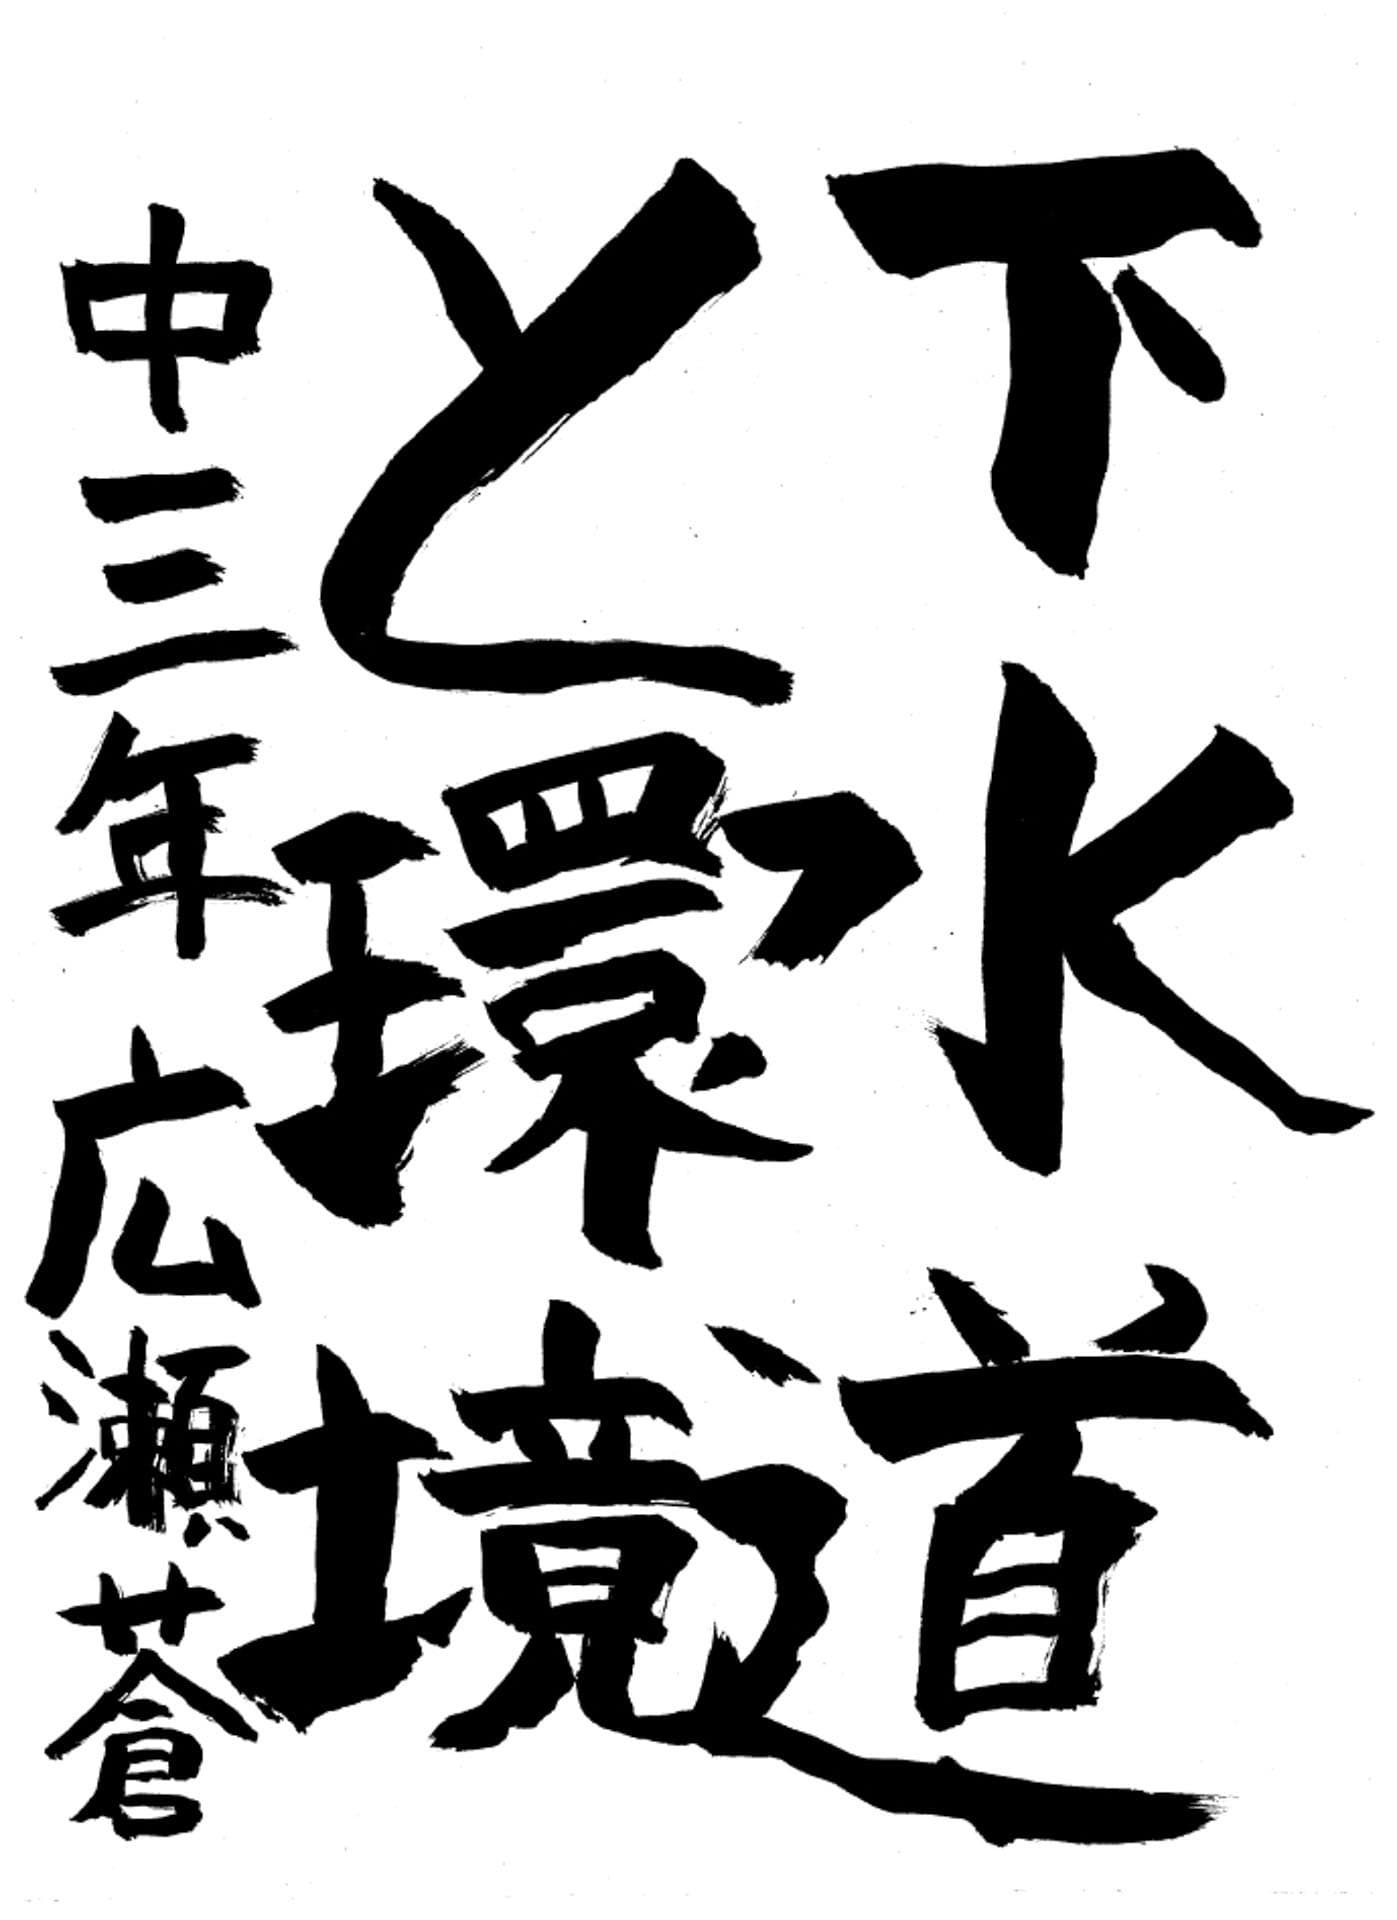 下水道
と環境
中三年広瀬蒼